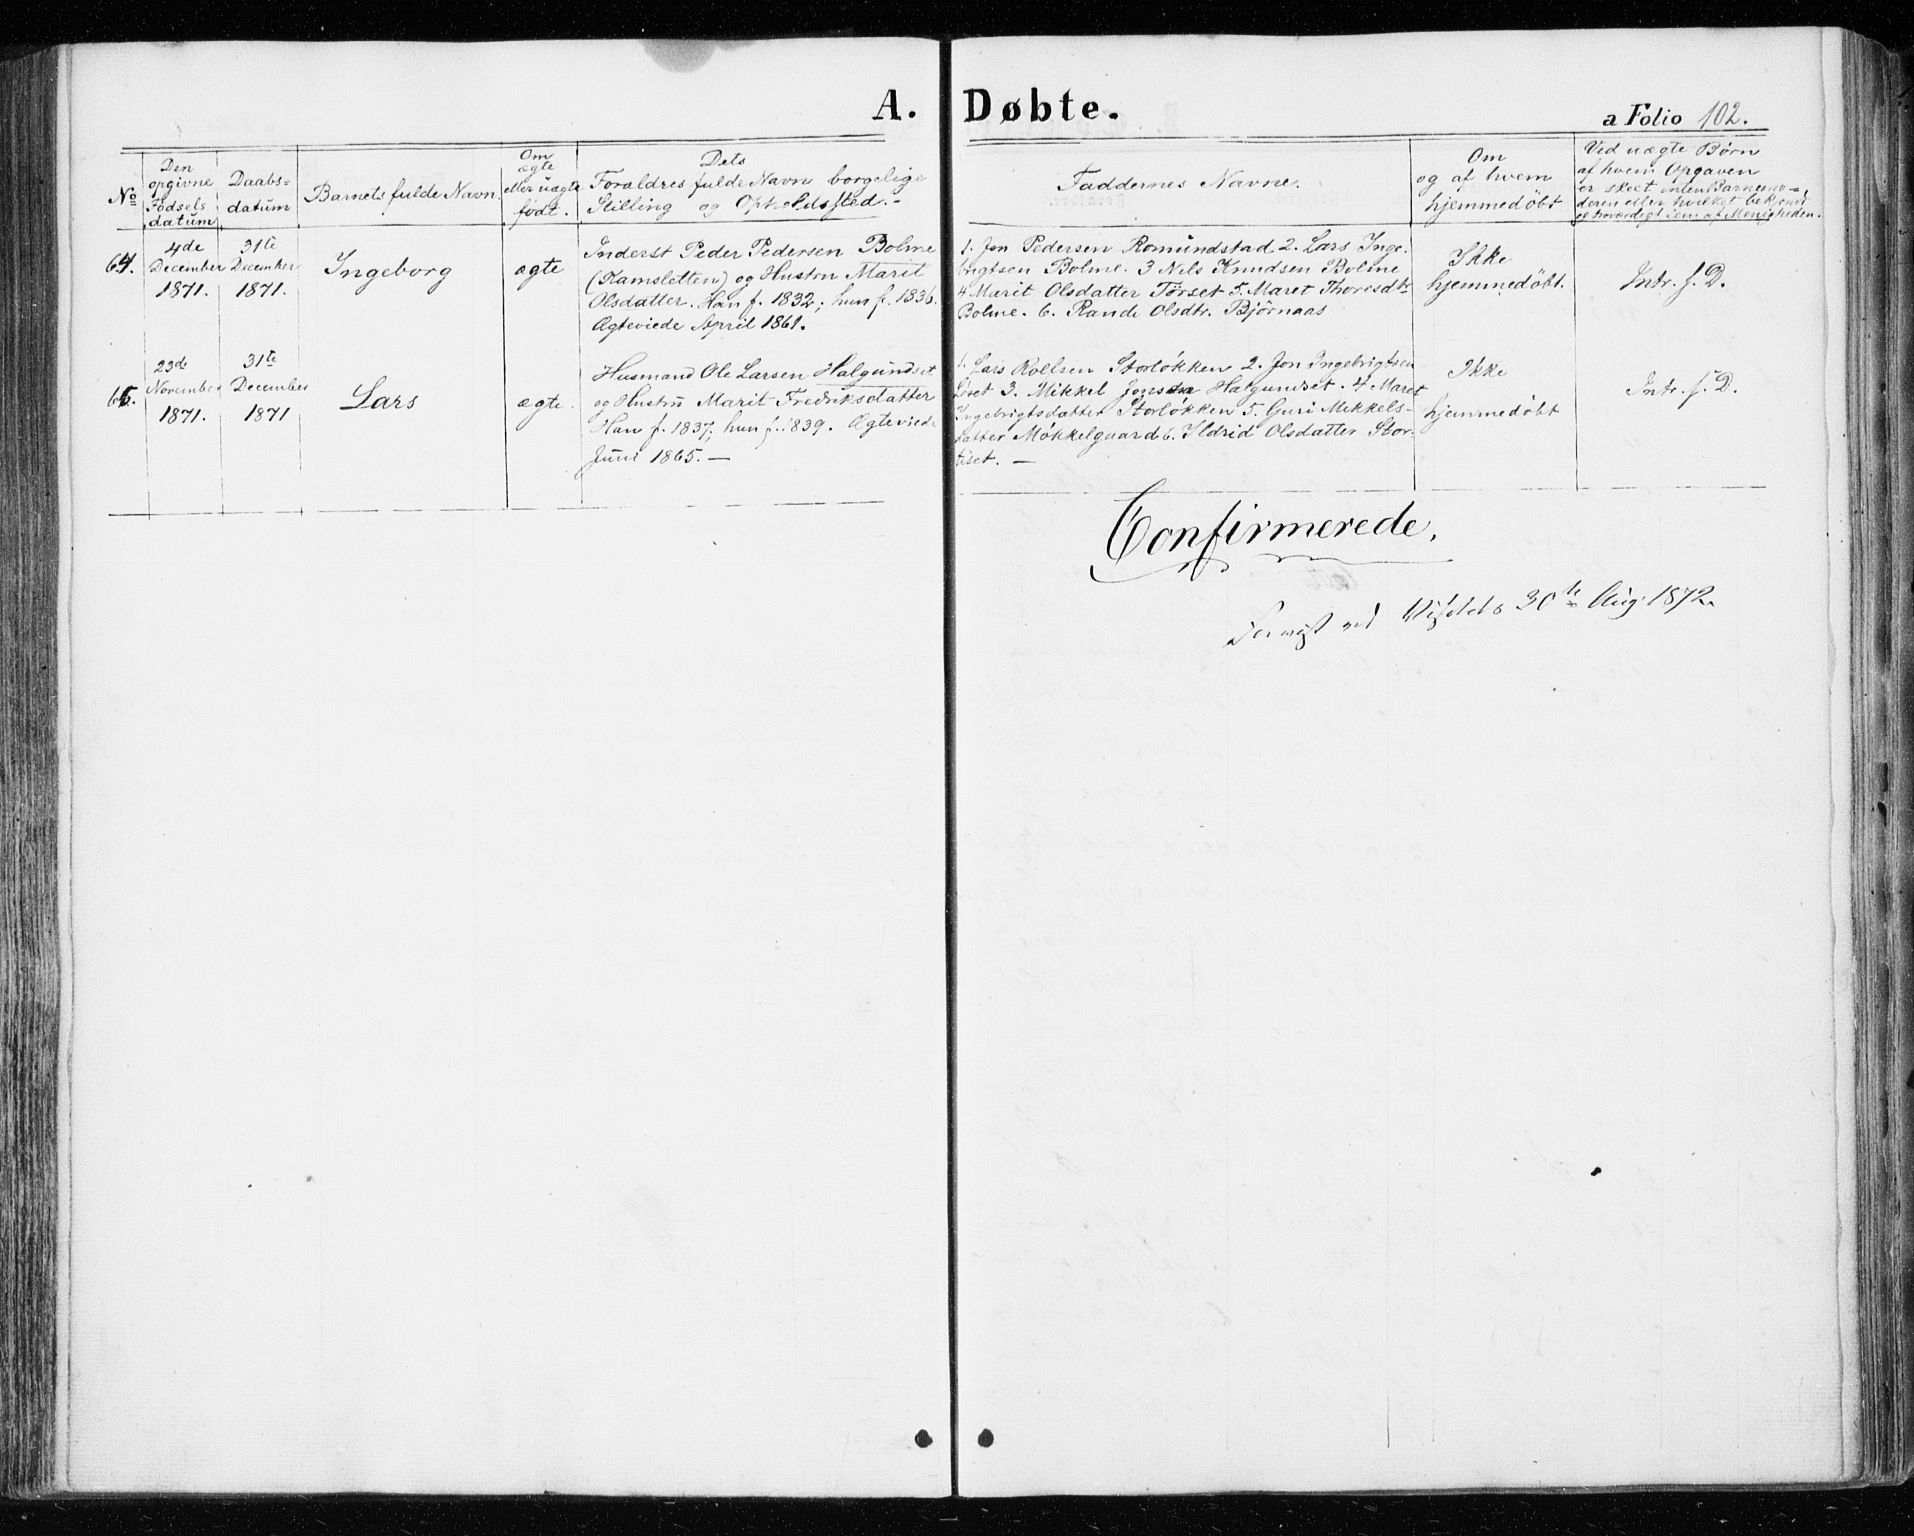 A. Døbte.
a Folio 102.
No
Den opgivne Fødsels datum
Daabs-datum
Barnets fulde Navn.
Om ægte eller uægte født.
Dets Forældres fulde Navn borgelige Stilling og Opholdssted.-
Faddernes Navne.
Om og af hvem hjemmedøbt
Ved uægte Børn af hvem Opgaven er skeet
64.
4de December 1871.
31te December 1871.
Ingeborg
ægte
Inderst Peder Pedersen Bolme
(Kamsletten) og Hustru Marit
Olsdatter. Han f. 1832; hun f. 1836.
Ægteviede April 1861.
1. Jon Pedersen Romundstad 2. Lars Inge-
brigtsen Bolme. 3 Nils Knudsen Bolme
4 Marit Olsdatter Törset 5. Maret Thoresdtr
Bolme. 6. Rande Olsdtr. Björnaas
Ikke
hjemmedøbt.
Intr. f. D.
65.
23de November 1871.
31te December 1871
Lars
ægte.
Husmand Ole Larsen Halgundset
og Hustru Marit Fredriksdatter
Han f. 1837; hun f. 1839. Ægteviede
Juni 1865. —
1. Lars Rolfsen Storløkken 2. Jon Ingebrigtsen
3. Mikkel Halgundset. 4 Maret
Ingebrigtsdatter Storløkken 5. Guri Mikkels-
datter Møkkelgaard 6. Ildrid Olsdatter Stor-
Ikke
hjemmedøbt
Intr. f. D.
Confirmerede.
ved 30te Aug: 1872.